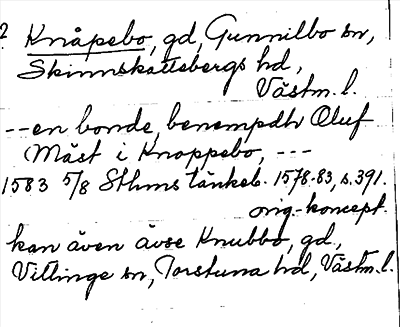 ? Knåpebo, gd, Gunnilbo sn,
Skinnskattebergs hd,
Västm. l.
-- en bonde, benempdh Oluf
Måst i Knoppebo, ---
1583 5/8 Sthms tänkeb. 1578-83, s. 391.
orig.-koncept.
kan även avse Knubbo, gd.,
Vittinge sn, Torstuna hd, Västm. l.